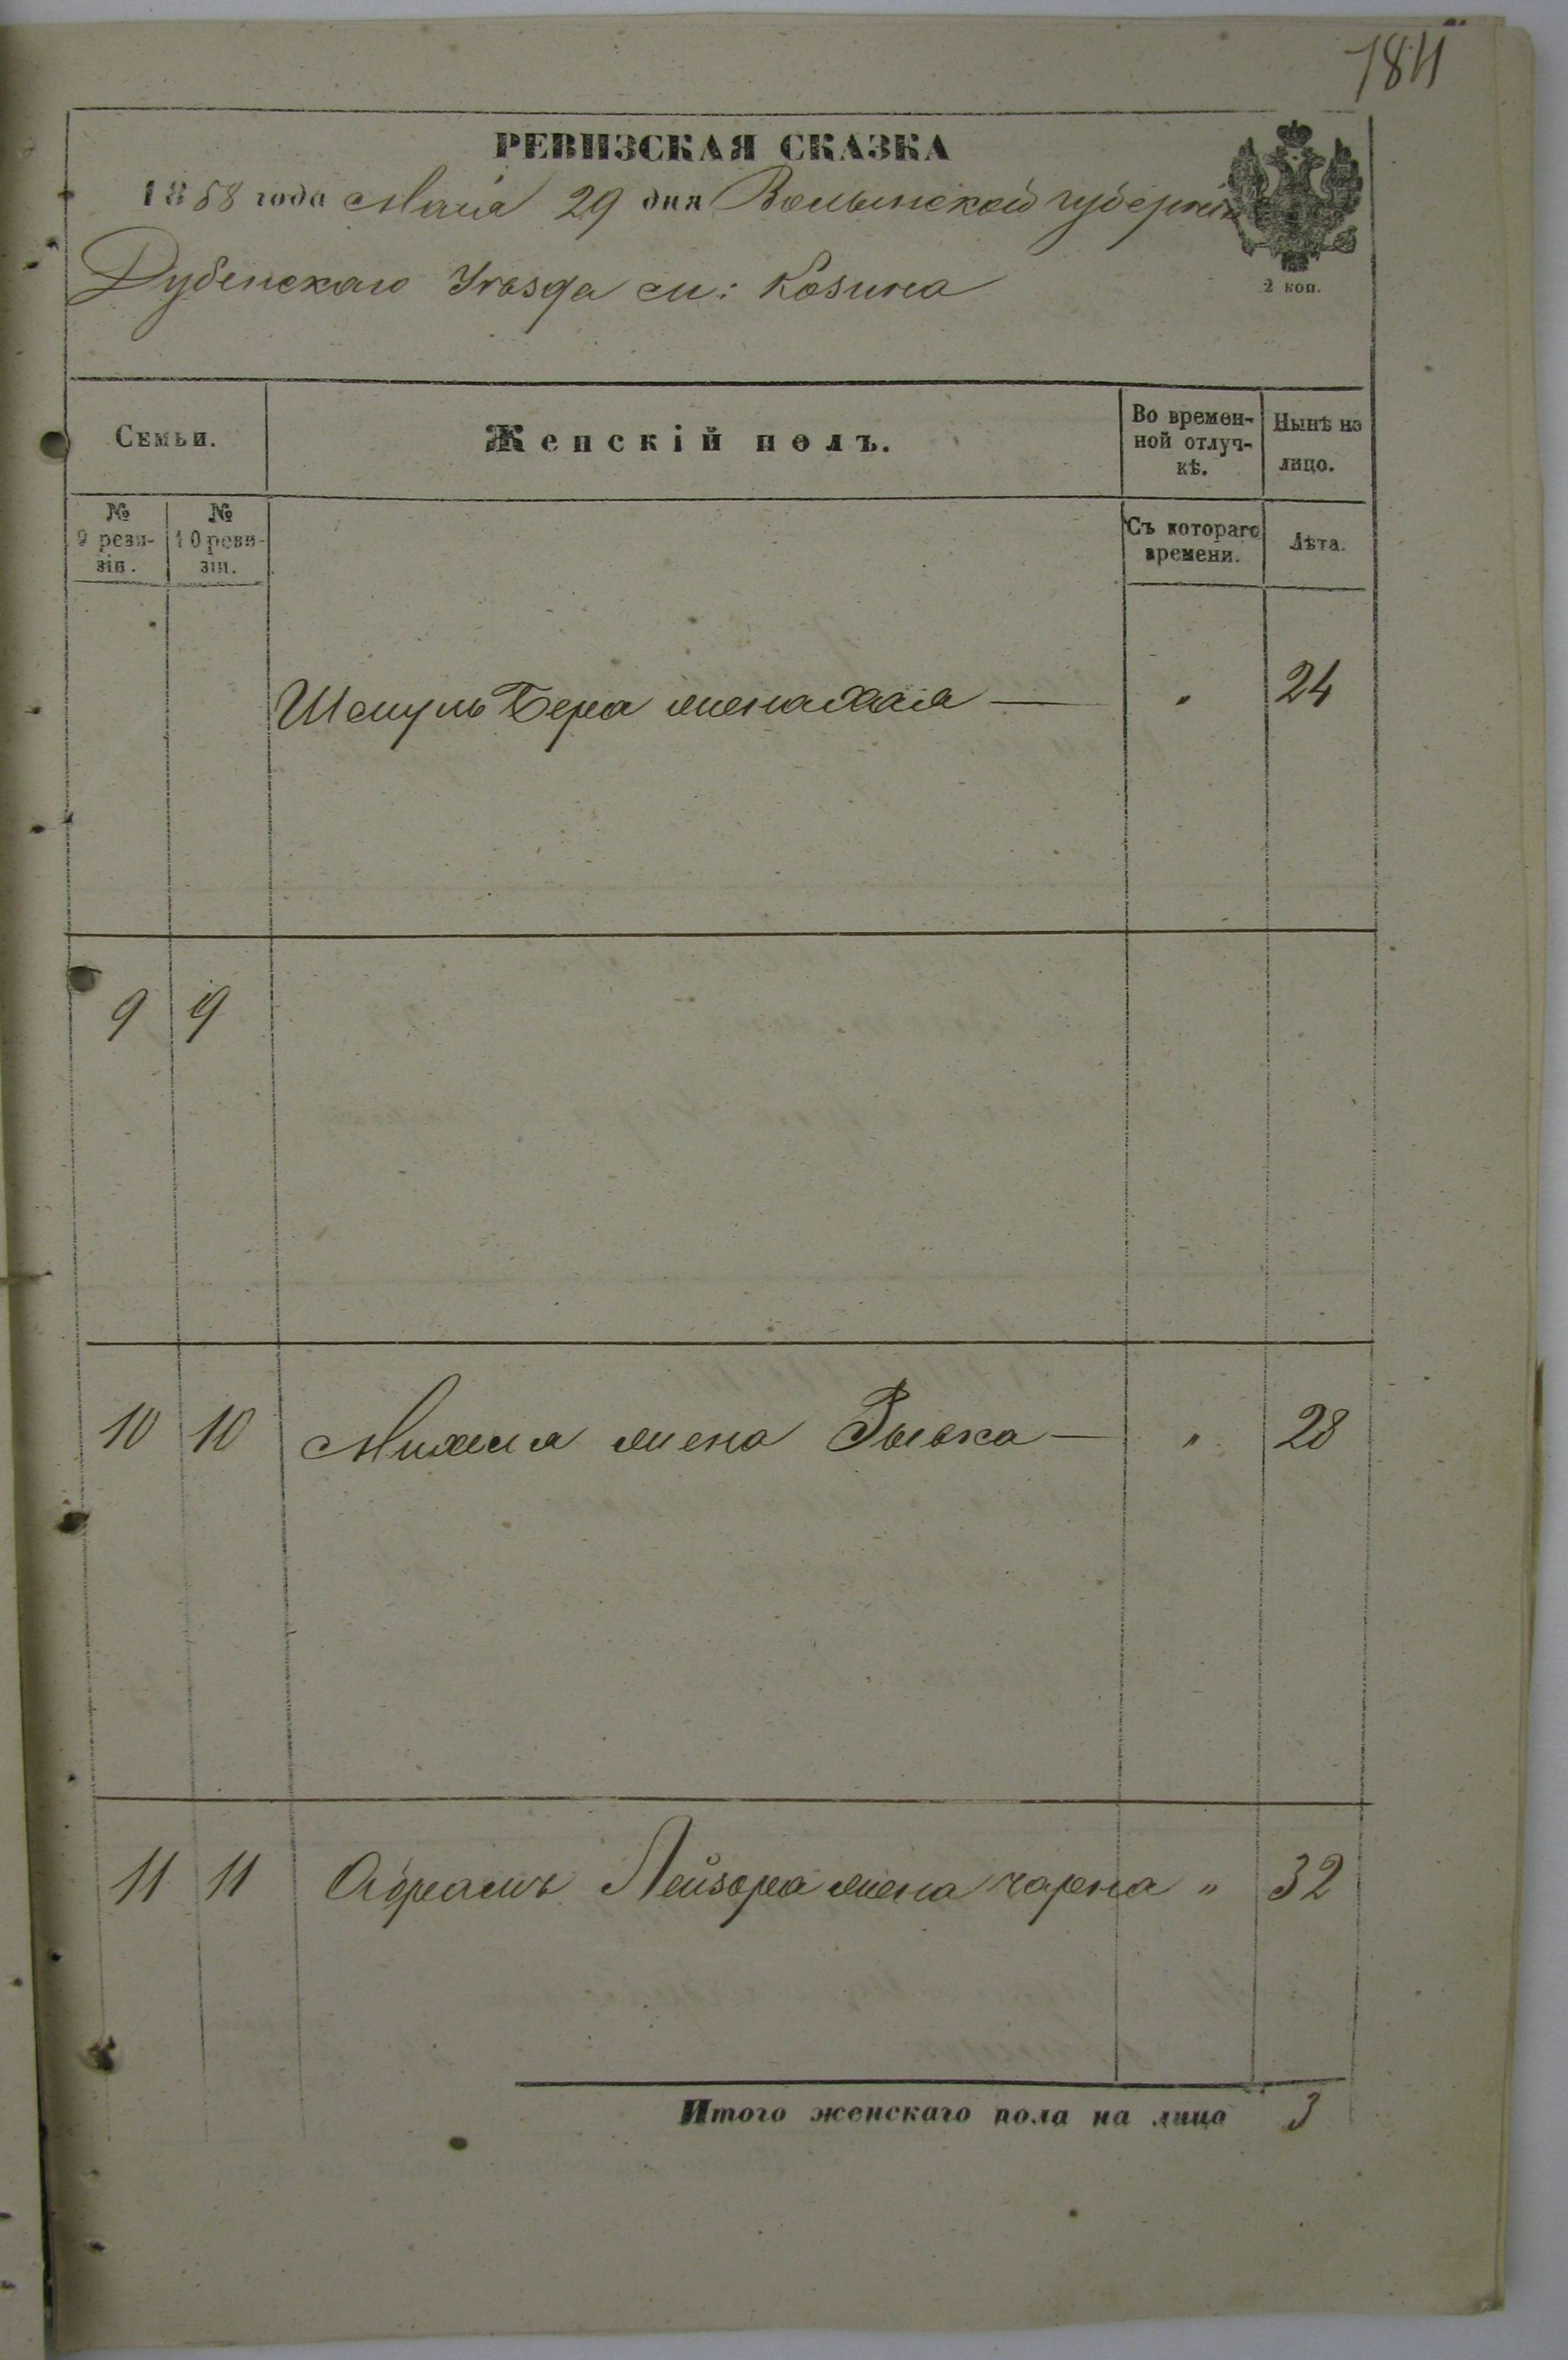 1811
РЕВИЗСКАЯ СКАЗКА
1858 года Маія 29 дня Волынской губерніи
Дубенскаго Уѣзда м: Козина
2 коп.
Семьи.
Женскій полъ.
Во времен-
ной отлуч-
кѣ.
Нынѣ на
лицо.
№
9 реви-
зіи.
№
10 реви-
зіи.
Съ котораго
времени.
Лѣта.
Шмуль Бера жена Хая — " 24
9 9
10 10 Михеля жена Рывка — " 28
11 11 Абрамъ Лейзора жена Чарна " 32
Итого женскаго пола на лицо 3